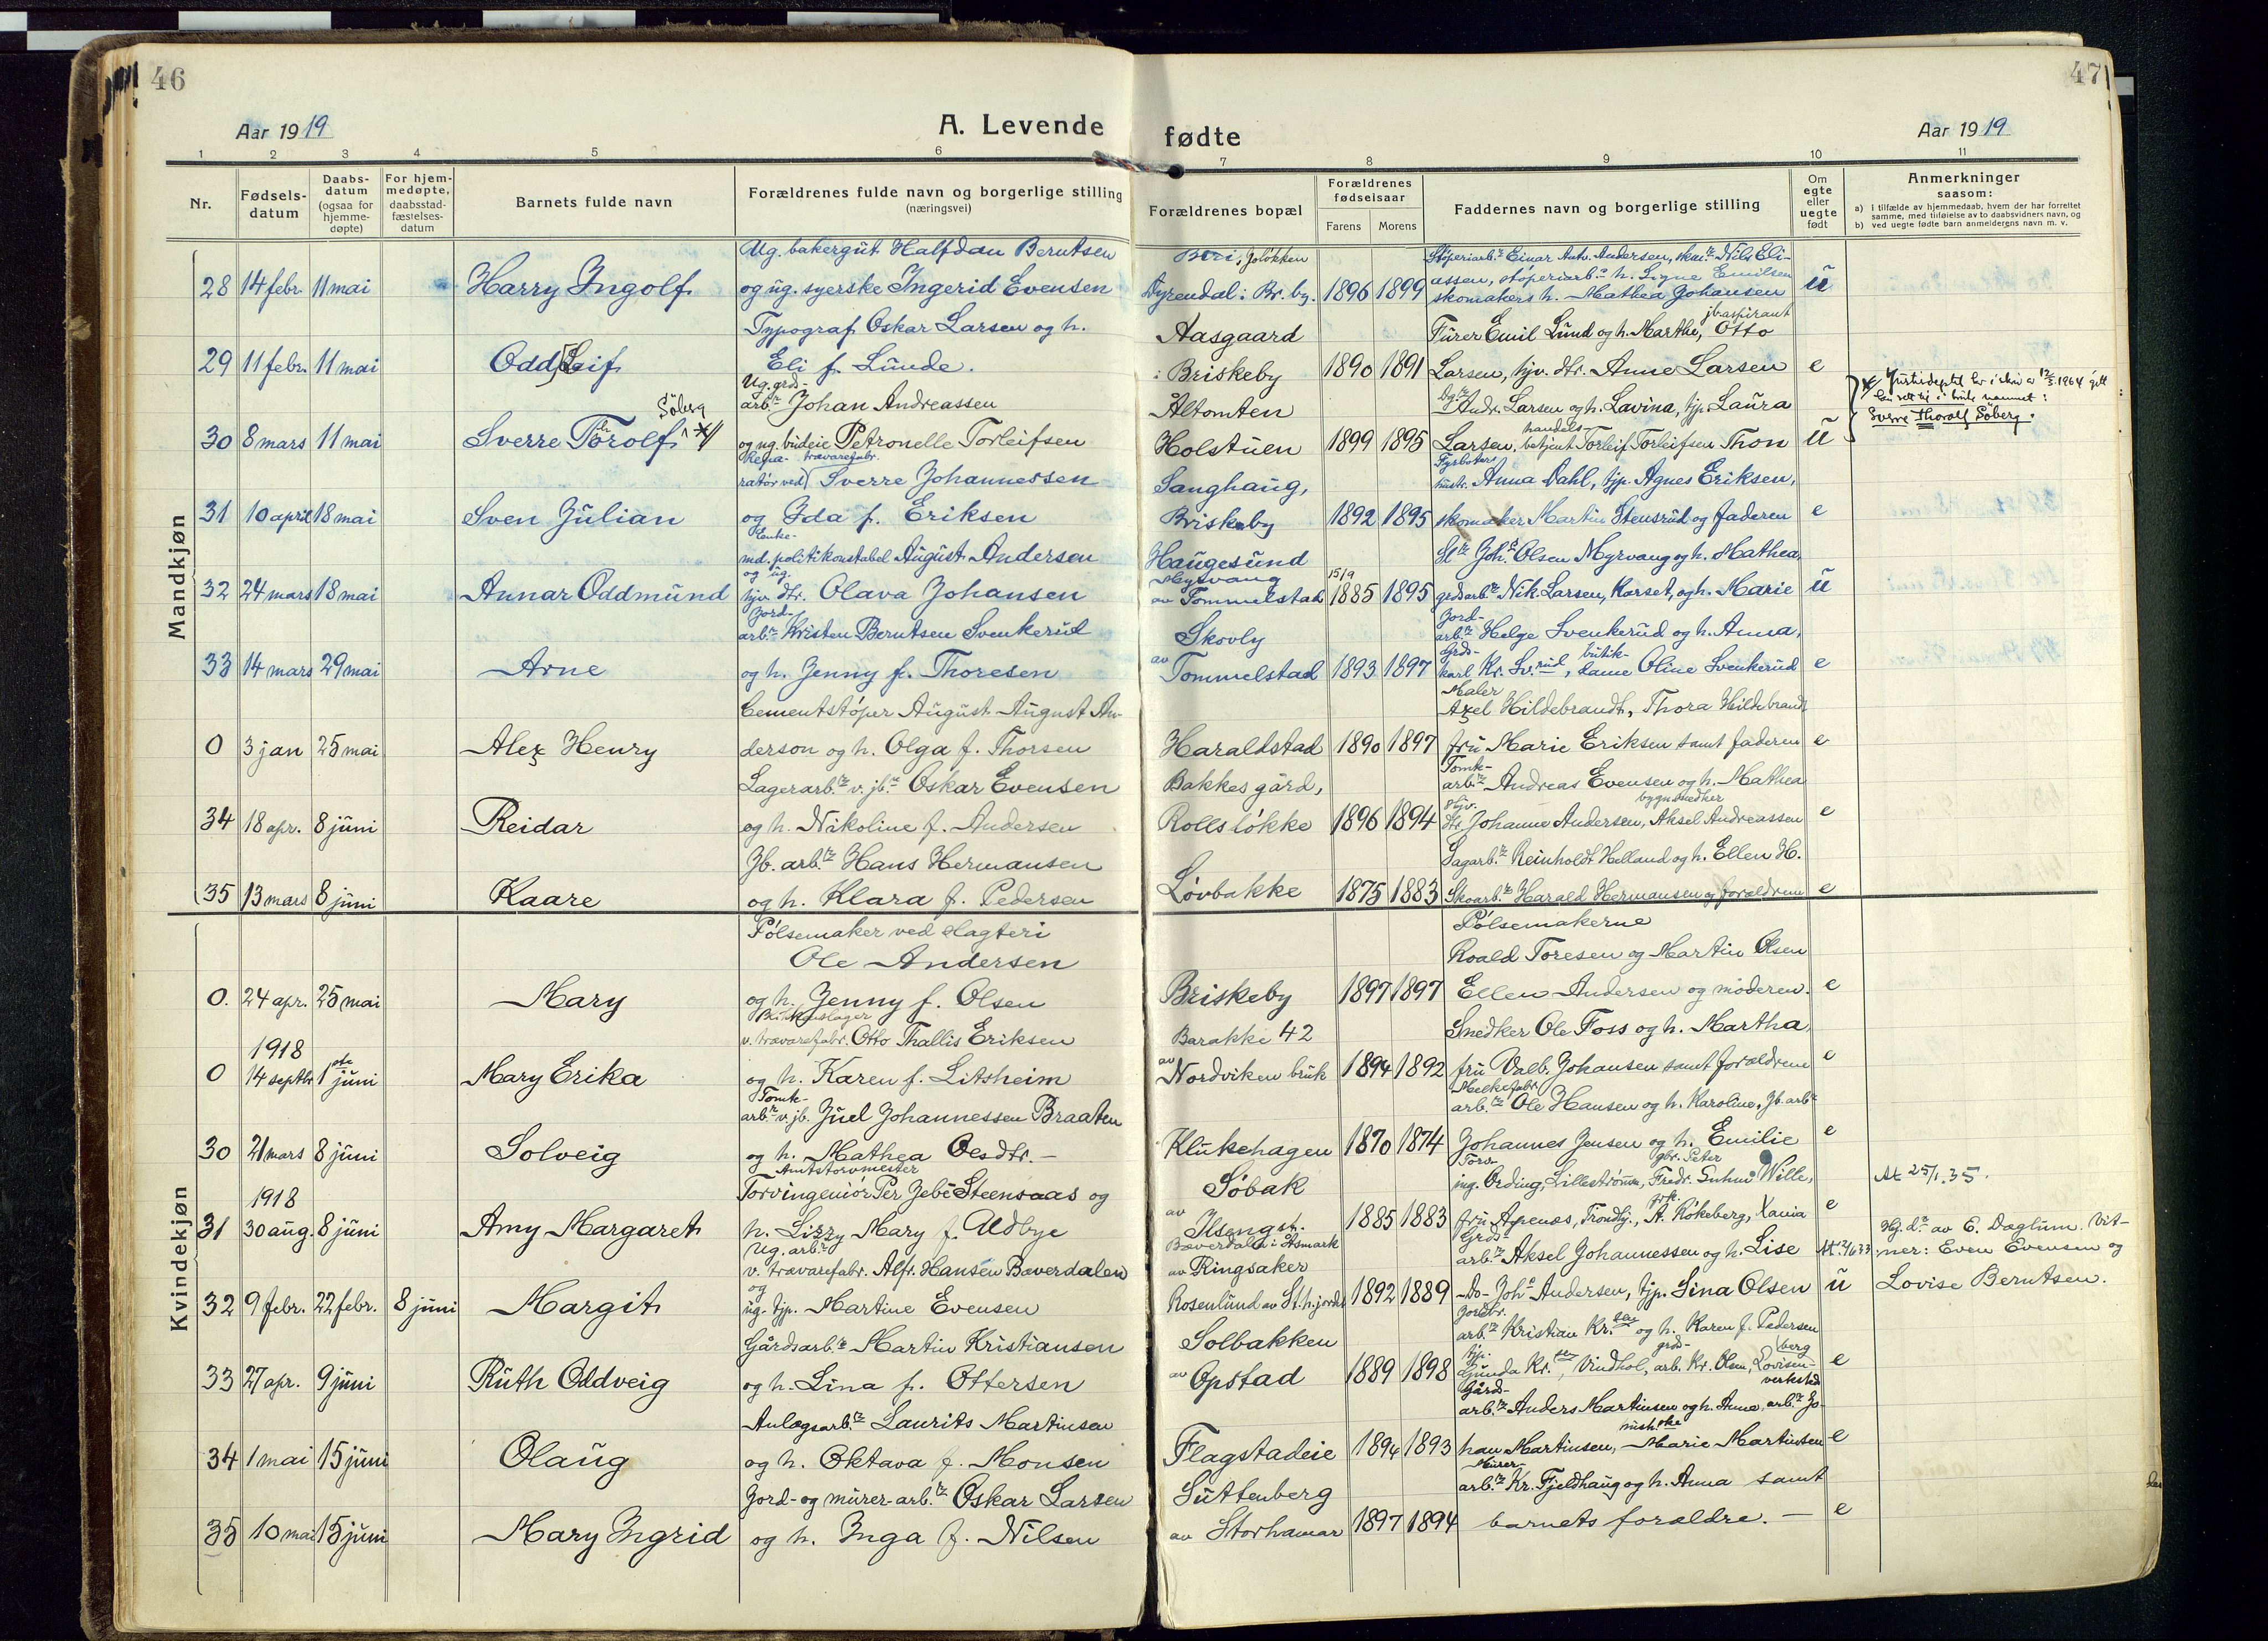 46
47
Aar 1919
A. Levende
fødte
Aar 1919
1 2 3 4 5 6 7 8 9 10 11
Nr.
Fødsels-
datum
Daabs-
datum
(ogsaa for
hjemme-
døpte)
For hjem-
medøpte,
daabsstad-
fæstelses-
datum
Barnets fulde navn
Forældrenes fulde navn og borgerlige stilling
(næringsvei)
Forældrenes bopæl
Forældrenes
fødselsaar
Farens Morens
Faddernes navn og borgerlige stilling
Om
egte
eller
uegte
født
Anmerkninger
saasom:
a) i tilfælde av hjemmedaab, hvem der har forrettet
samme, med tilføielse av to daabsvidners navn, og
b) ved uegte fødte barn anmelderens navn m. v.
Mandkjøn
Ug. bakergut Halfdan Berntsen
28 14 febr. 11 mai Harry Ingolf og ug. syerske Ingerid Evensen
Dyrendal i Br. by. 1896 1899
Støperiarb.r Einar Antr. Andersen, skom.r Nils Eli-
assen, støperiarb.r h. Signe Emilsen
skomakers h. Mathea Johansen ü
Typograf Oskar Larsen og h.
29 11 febr. 11 mai Odd Leif Eli f. Lunde.
Aasgaard
i Briskeby 1890 1891
jb.aspirant
Fürer Emil Lund og h. Marthe, Otto
Larsen, hjv. dtr. Anne Larsen e
Ug. grds-
arb.r Johan Andreassen
Søberg
30 8 mars 11 mai Sverre Torolf og ug. budeie Petronelle Torleifsen
Åltomten
Holstuen 1899 1895
Andr. Larsen og h. Lavina, tjp. Laura
handels-
Larsen, betjent Torleif Torleifsen Thon ü
Sverre Thoralf Søberg.
Repa- trævarefabr.
ratør ved Sverre Johannessen
31 10 april 18 mai Sven Julian og Ida f. Eriksen
Sanghaug,
Briskeby 1892 1895
Fyrbøters
hustr. Anna Dahl, tjp. Agnes Eriksen,
skomaker Martin Stensrud og faderen e
Enke-
md. politikonstabel August Andersen
og ug.
32 24 mars 18 mai Annar Oddmund hjv. dtr. Olava Johansen
Haugesund
Myrvang
av Tommelstad 15/9 1885 1895
Joh.s Olsen Myrvang og h. Mathea,
grdsarb.r Nik. Larsen, Korset, og h. Marie ü
Jord-
arb.r Kristen Berntsen Svenkerud
33 14 mars 29 mai Arne og h. Jenny f. Thoresen
Skovly
av
Tommelstad 1893 1897
Jord-
arb.r Helge Svenkerud og h. Anna,
Grds- butik-
karl Kr. Sv.rud, dame Oline Svenkerud e
Cementstøper August August An-
0 3 jan 25 mai Alex Henry derson og h. Olga f. Thorsen
Haraldstad 1890 1897
Maler
Axel Hildebrandt, Thora Hildebrandt
fru Marie Eriksen samt faderen e
Lagerarb.r v. jb.n Oskar Evensen
34 18 apr. 8 juni Reidar og h. Nikoline f. Andersen
Bakkes gård,
Rollsløkke 1896 1894
Tomte-
arb.r Andreas Evensen og h. Mathea
Hjv. bygn.snedker
dtr. Johanne Andersen, Aksel Andreassen e
Jb. arb.r Hans Hermansen
35 13 mars 8 juni Kaare og h. Klara f. Pedersen
Løvbakke 1875 1883
Sagarb.r Reinholdt Helland og h. Ellen H.
Skoarb.r Harald Hermansen og forældrene e
Kvindekjøn
Pølsemaker ved slagteri
Ole Andersen
0. 24 apr. 25 mai Mary og h. Jenny f. Olsen
Briskeby 1897 1897
Pølsemakerne
Roald Toresen og Martin Olsen
Ellen Andersen og moderen. e
Blikkenslager
v. trævarefabr. Otto Thallis Eriksen
1918
0 14 septbr 1ste juni Mary Erika og h. Karen f. Litsheim
Barakke 42
av
Nordviken bruk 1894 1892
Snedker Ole Foss og h. Martha,
fru Valb. Johansen samt forældrene e
Tomte-
arb.r v. jb. Juel Johannessen Braaten
30 21 mars 8 juni Solveig og h. Mathea Olsdtr. —
Klukehagen 1870 1874
Melkefabr.
arb.r Ole Hansen og h. Karoline, Jb. arb.r
Johannes Jensen og h. Emilie e
Amtstorvmester
Torvingeniør Per Jebe Steensaas og
1918
31 30 aug. 8 juni Amy Margaret h. Lizzy Mary f. Aldbye
Søbak
av
Ilseng st. 1885 1883
Torv- gbr. Peter
ing. Ording, Lillestrømm, Fredr. Wille,
frk.
fru Apenæs, Trondhj., A. Røkeberg, Xania e
At 25/1.35.
Ug. arb.r
v. trævarefabr. Alfr. Hansen Bæverdalen
og
32 9 febr. 22 febr. 8 juni Margit ug. tjp. Martine Evensen
Bæverdalen i Åsmark
av Ringsaker
Rosenlund av St. h. jordet 1892 1889
Grds-
arb.r Aksel Johannessen og h. Lise
—Do— Joh.s Andersen, tjp. Lina Olsen ü
Hj. d. av E. Dæglum. Vit-
ner: Even Evensen og
Lovise Berntsen.
Gårdsarb.r Martin Kristiansen
33 27 apr. 9 juni Ruth Oddveig og h. Lina f. Ottersen
Solbakken
av Opstad 1889 1898
Jordbr.
arb.r Kristian Kr.sen og h. Karen f. Pedersen
tjp. grds- berg
Gunda Kr.sen, Vindhol, arb. Kr. Olsen, Lovisen- e
verksted
Anlægsarb.r Laurits Martinsen
34 1 mai 15 juni Olaug og h. Oktava f. Monsen
Flagstadeie 1894 1893
Gårds-
arb.r Anders Martinsen og h. Anna, arb.r Jo-
han Martinsen, Marie Martinsen e
Jord- og murer-arb.r Oskar Larsen
35 10 mai 15 juni Mary Ingrid og h. Inga f. Nilsen
Suttenberg
av Storhamar 1897 1894
Murer-
arb.r Kr. Fjeldhaug og h. Anna samt
barnets forældre. — e